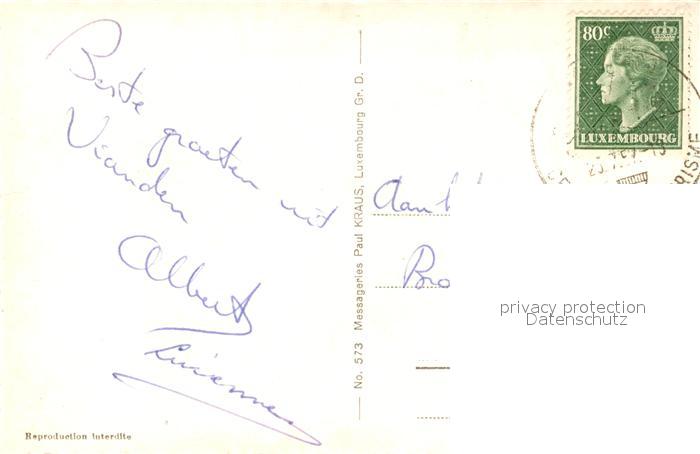 Beste groeten uit
Vianden
Albert
Lucienne
Reproduction interdite
No. 573 Messageries Paul KRAUS, Luxembourg Gr. D.
80c
LUXEMBOURG
RISME
Aan
Bro
privacy protection
Datenschutz